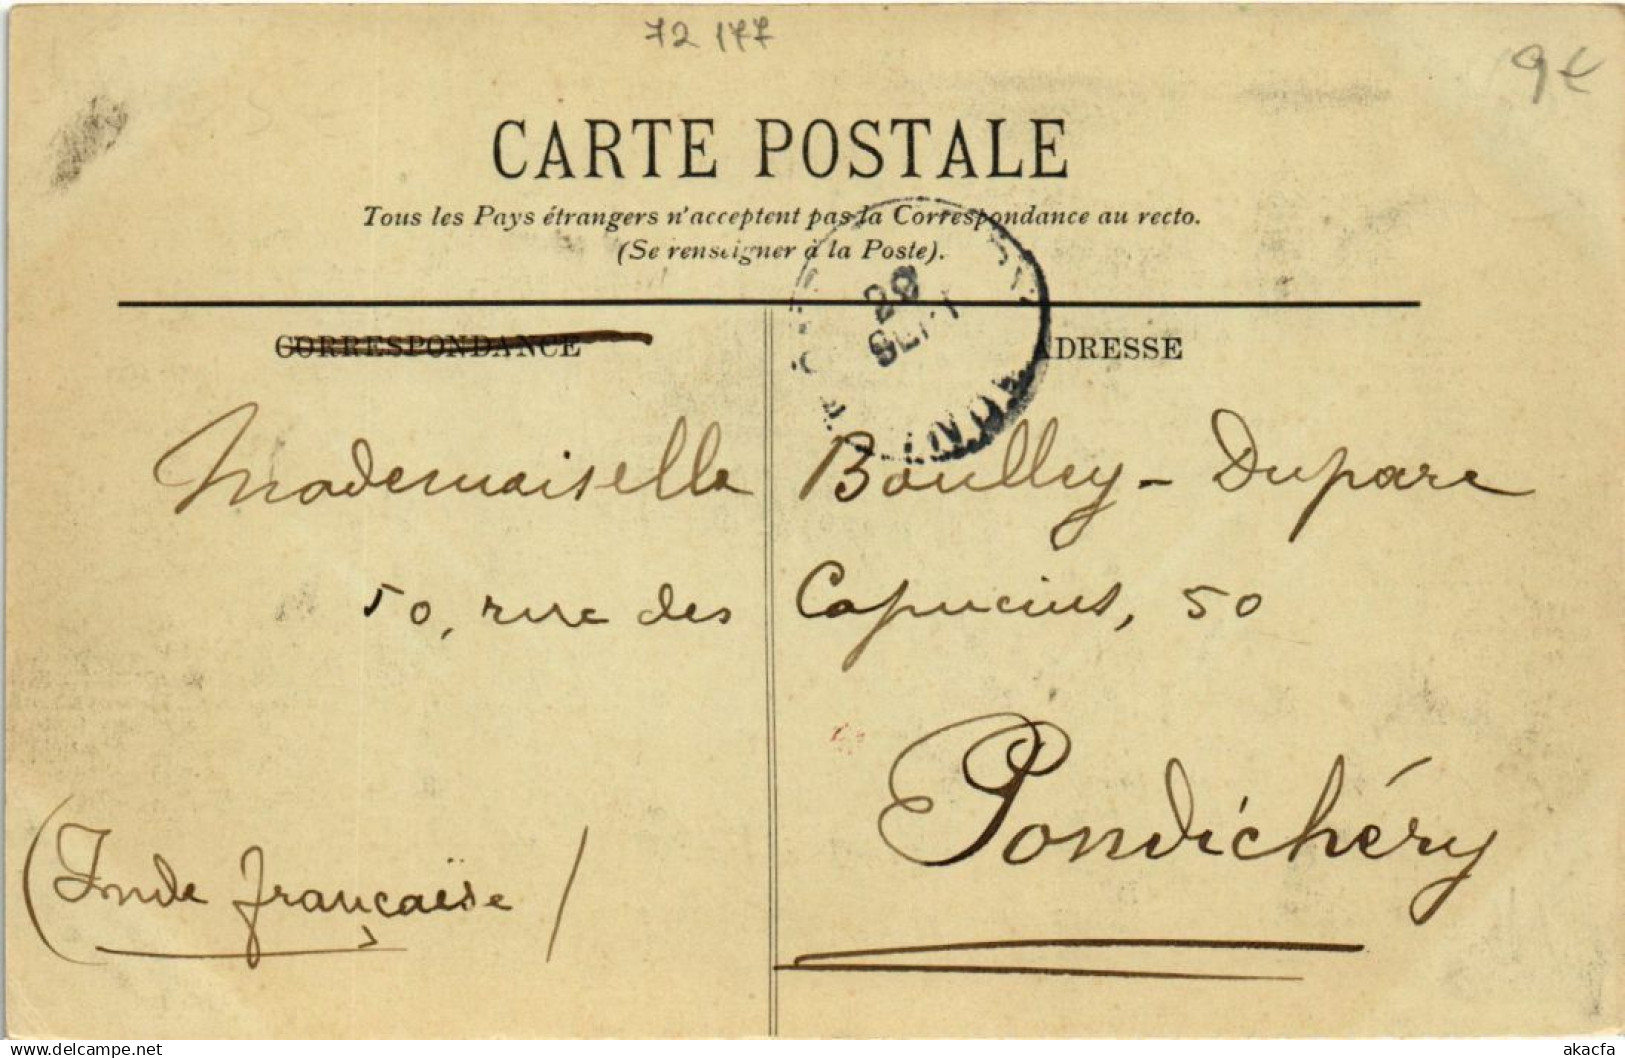 72 177
9€
CARTE POSTALE
Tous les Pays étrangers n'acceptent pas la Correspondance au recto.
(Se renseigner à la Poste).
CORRESPONDANCE
ADRESSE
29
SEPT
Mademoiselle Boulley - Duparc
50, rue des Capucins, 50
Pondichéry
(Inde française)
delcampe.net
akacfa